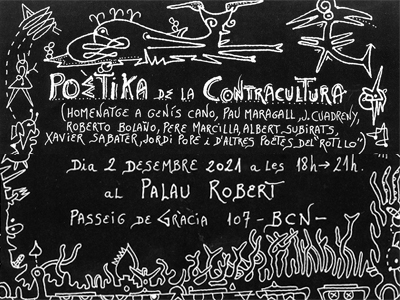 POËTIKA DE LA CONTRACULTURA
(HOMENATGE A GENÍS CANO, PAU MARAGALL, J. CUADRENY,
ROBERTO BOLAÑO, PERE MARCILLA, ALBERT SUBIRATS,
XAVIER SABATER, JORDI POPE I D'ALTRES POETES DEL "ROTLLO")
DIA 2 DESEMBRE 2021 A LES 18h → 21h.
AL PALAU ROBERT
PASSEIG DE GRÀCIA 107 - BCN -